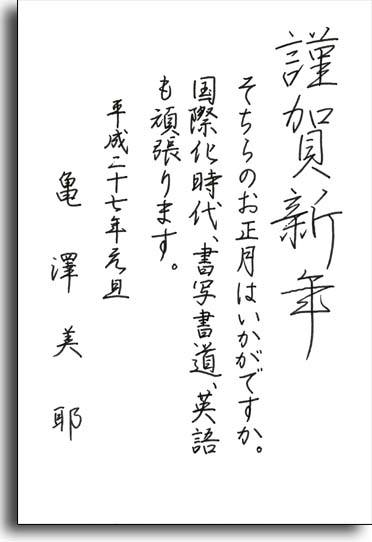 謹賀新年
そちらのお正月はいかがですか。
国際化時代、書写書道、英語
も頑張ります。
平成二十七年元旦
亀澤美耶